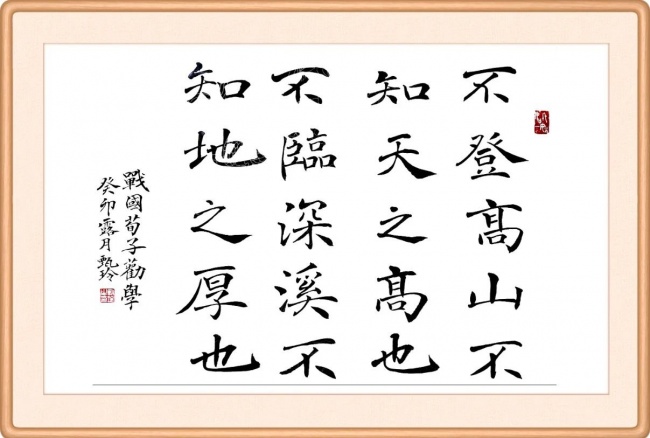 不登髙山不
知天之髙也
不臨深溪不
知地之厚也
戰國荀子勸學
癸卯露月甄玲